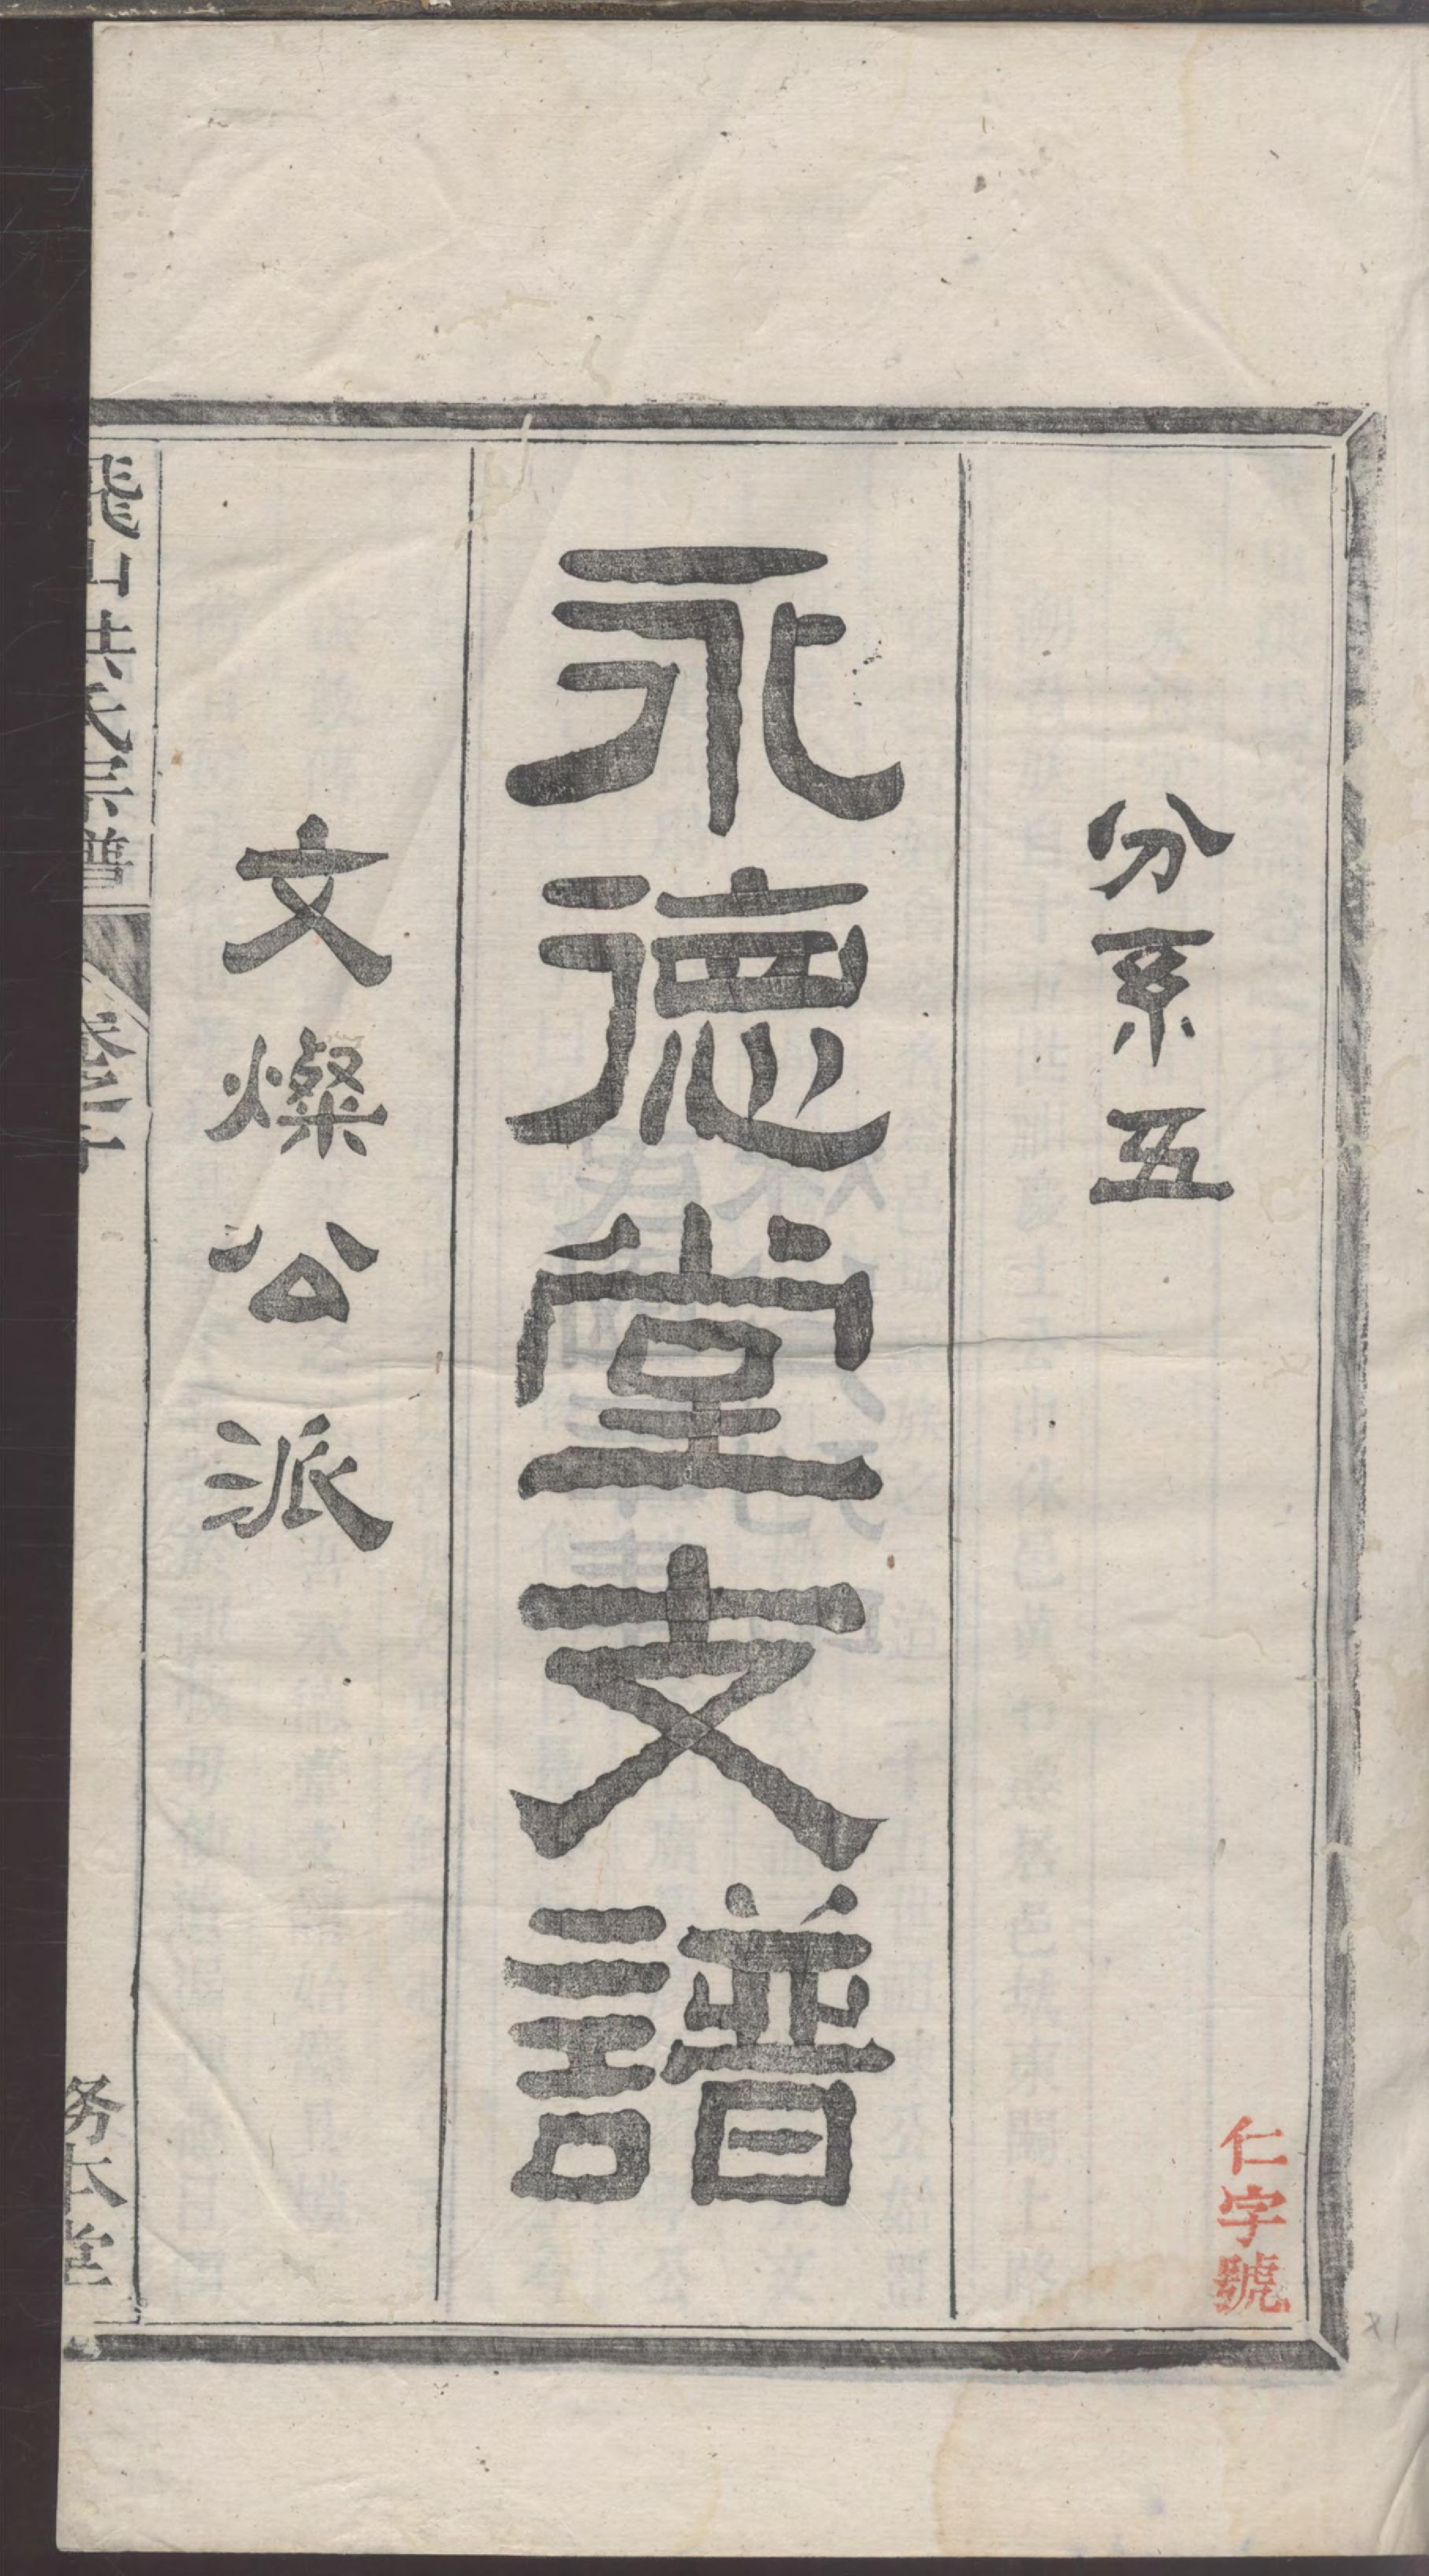 分系五
仁字號
永德堂支譜
文燦公派
氏宗譜
務本堂